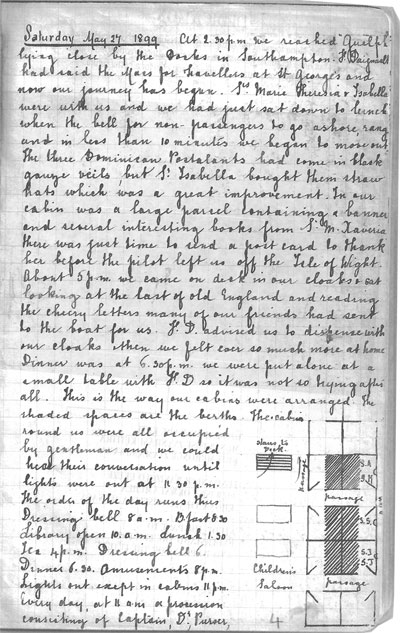 Saturday May 27. 1899. At 2.30 p.m. we reached "Guelph"
lying close by the Docks in Southampton. Fr
had said the Mass for Travellors at St Georges and
now our journey has begun. Srs Marie Theresia & Isabella
were with us and we had just sat down to lunch
when the bell for non-passengers to go ashore rang
and in less than 10 minutes we began to move out.
The three Dominican Postulants had come in black
gauze veils, but Sr Isabella bought them straw
hats which was a great improvement. In our
cabin was a large parcel containing a banner
and several interesting books from Sr M. Xaveria
there was just time to send a post card to thank
her before the pilot left us off the Isle of Wight.
About 5 p.m. we came on deck in our cloaks & sat
looking at the last of old England and reading
the cheery letters many of our friends had sent
to the boat for us. Fr D. advised us to dispense with
our cloaks & then we felt ever so much more at home
Dinner was at 6.30 p.m. we were put alone at a
small table with Fr D so it was not so trying after
all. This is the way our cabins were arranged. The
shaded spaces are the berths. The cabins
round us were all occupied
by gentleman and we could
hear their conversation until
lights were out at 11.30 p.m.
The order of the day runs thus
Dressing bell 8 a.m. B'fast 8.30
Library open 10 a.m. Lunch 1.30
Tea 4 p.m. Dressing bell 6.
Dinner 6.30. Amusements 8 p.m.
Lights out except in cabins 11 p.m.
Every day, at 11 a.m a procession
consisting of Captain, Dr, Purser,
stairs to
Deck
passage
S.A
passage
S.S.C
S.J
Children's
Saloon
passage
4